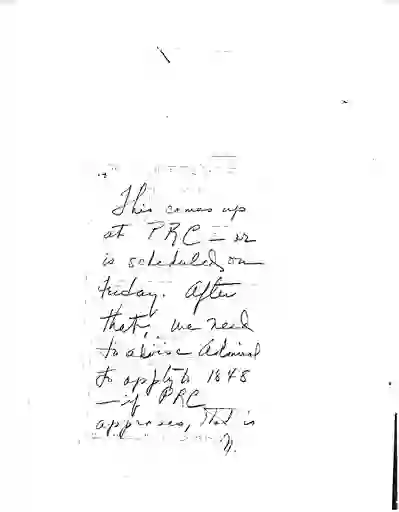 This comes up
at PRC — or
is scheduled on
Friday. After
that, we need
to advise Admiral
to apply to 1648
— if PRC
approves, that is
N.